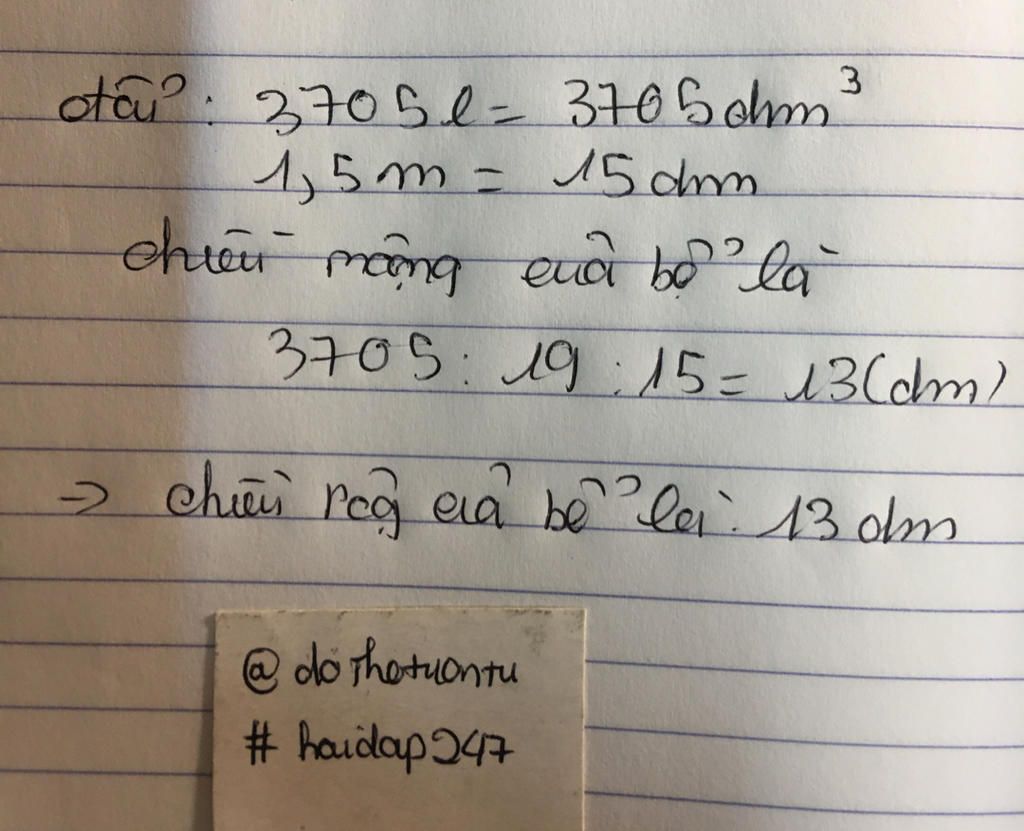 đổi : 3705 l = 3705 dm³
1,5 m = 15 dm
chiều rộng của bể là
3705 : 19 : 15 = 13 (dm)
=> chiều rộg của bể là : 13 dm
@ do Thotuontu
# hoidap247